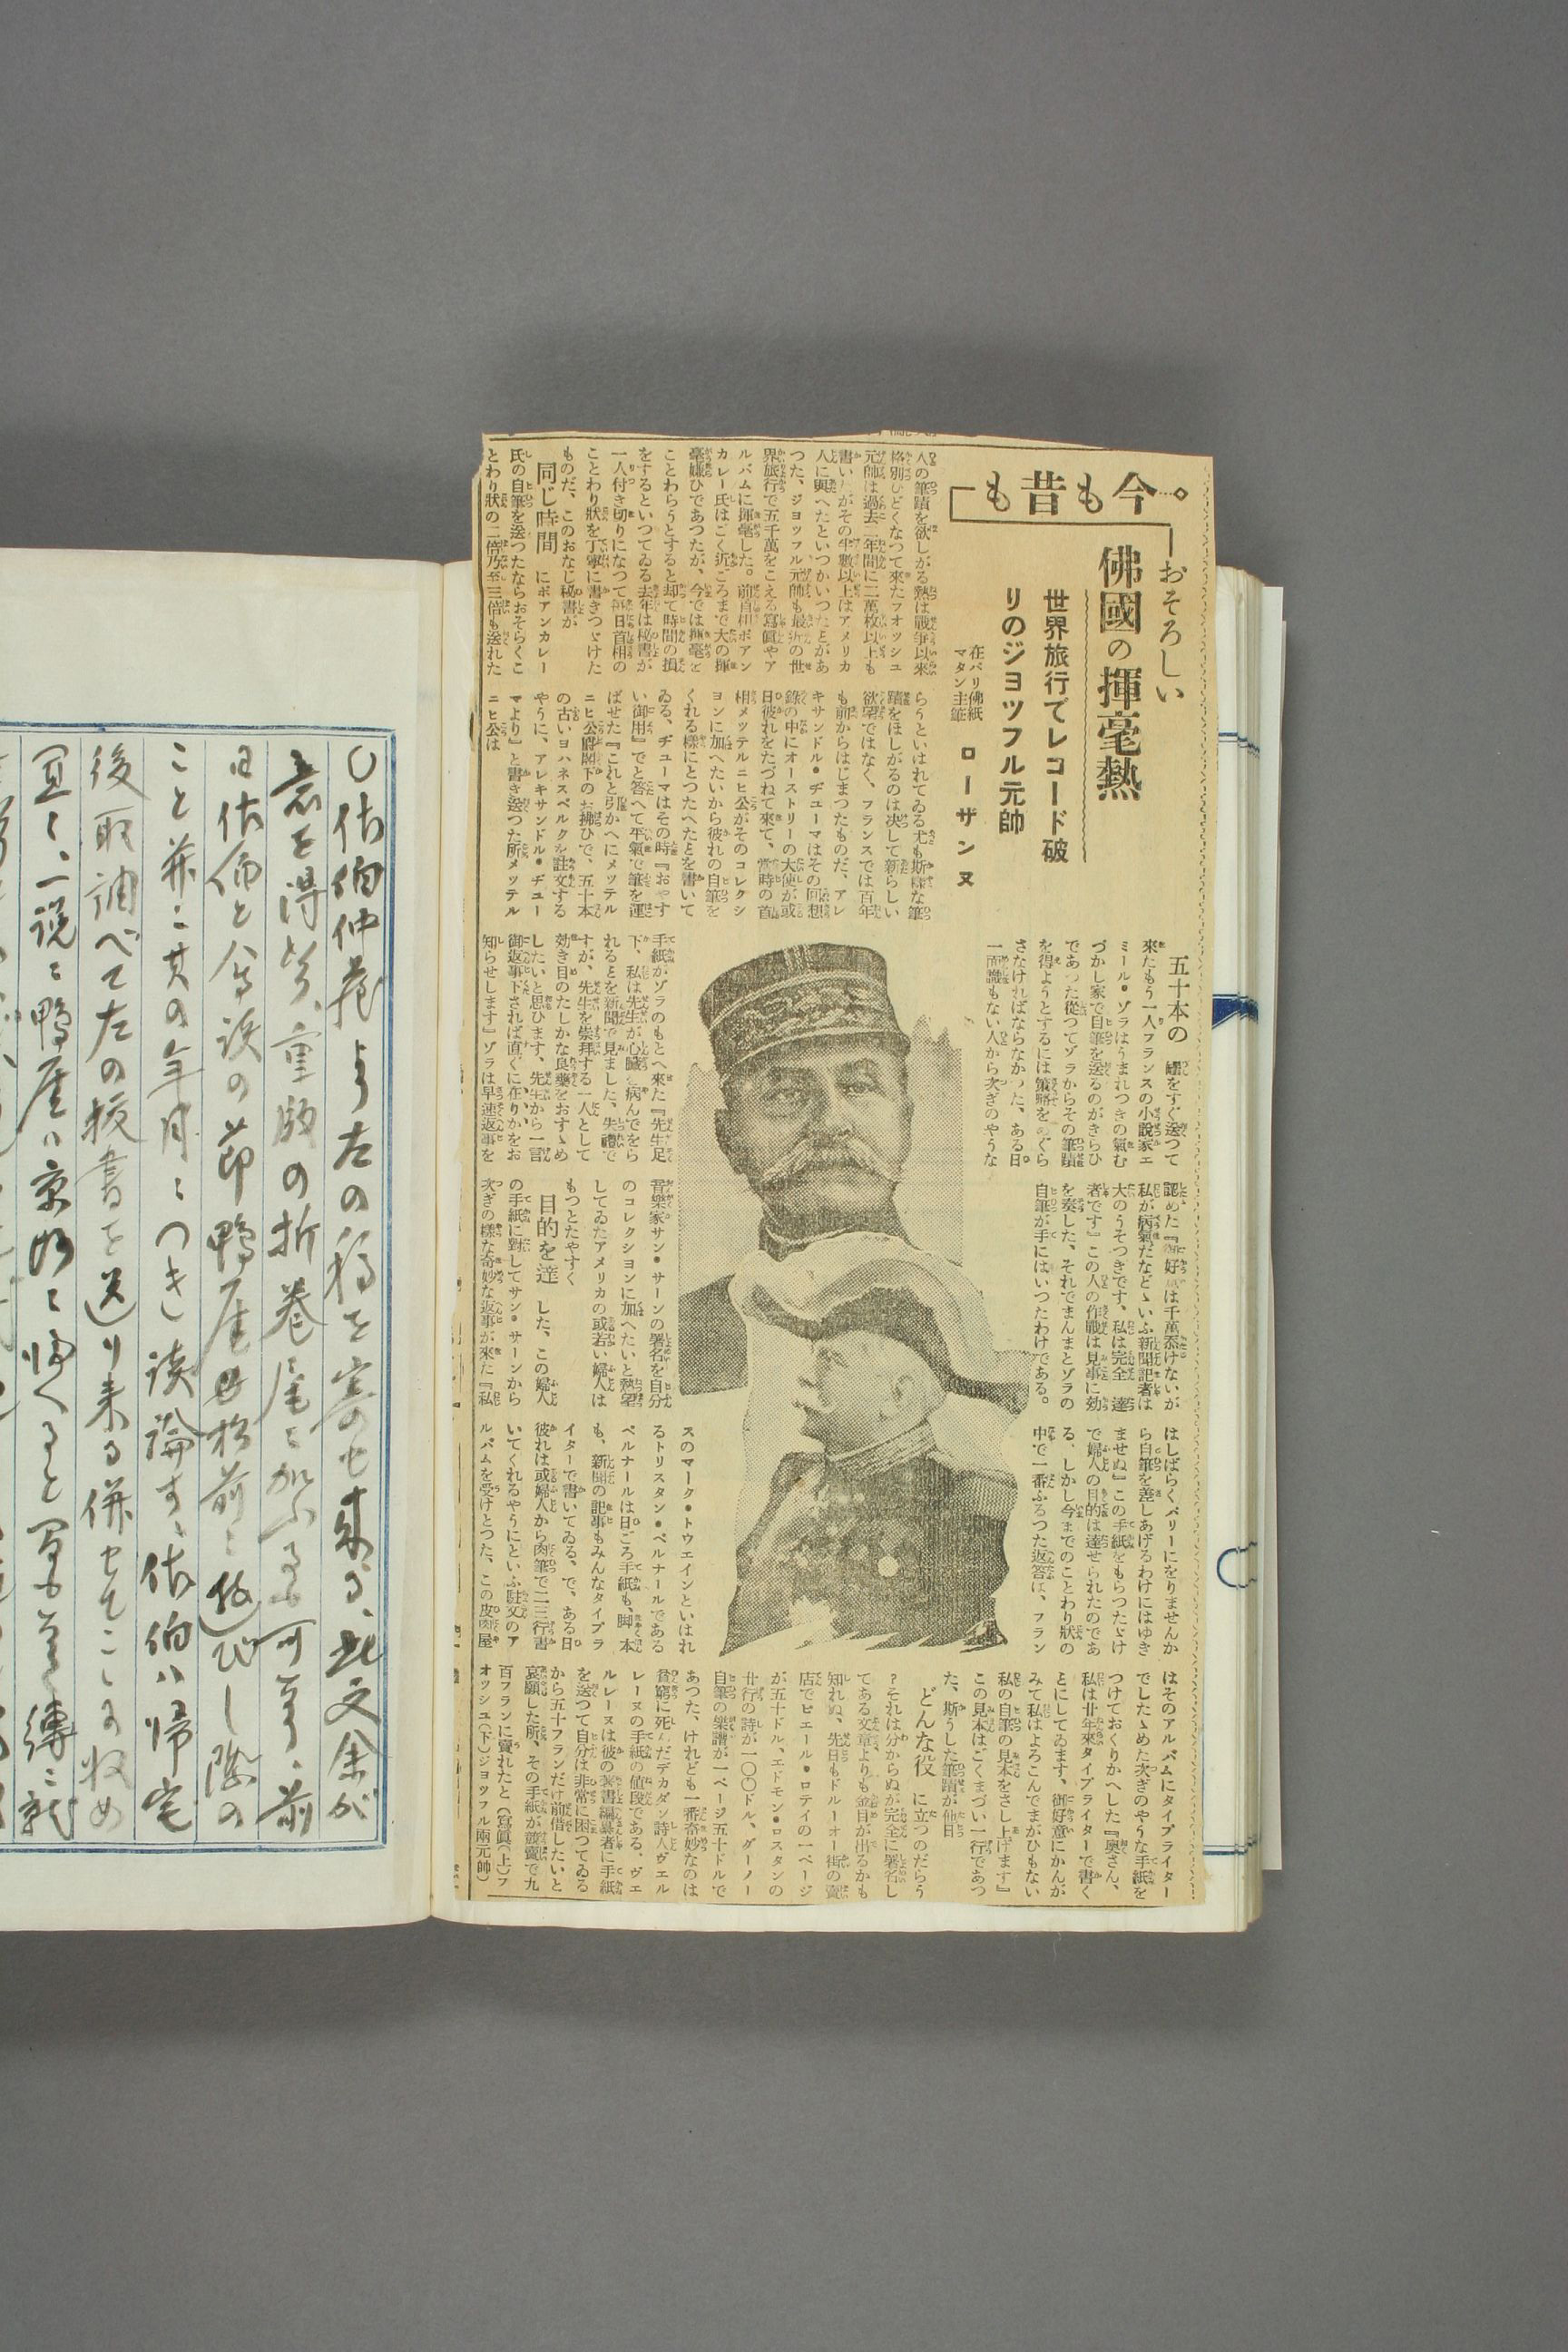 今も昔も
おそろしい
佛國の揮毫熱
世界旅行でレコード破
りのジヨツフル元帥
在パリ佛紙
マタン主筆
ローザンヌ
人の筆蹟を欲しがる熱は戰爭以來
格別ひどくなつて來たフオッシュ
元帥は過去二年間に二萬枚以上も
書いたがその半數以上はアメリカ
人に與へたといつかいつたとがあ
つた、ジヨッフル元帥も最近の世
界旅行で五千萬をこえる寫眞やア
ルバムに揮毫した。前首相ポアン
カレー氏はごく近ごろまで大の揮
毫嫌ひであつたが、今では揮毫を
ことわらうとすると却て時間の損
をするといつてゐる去年は秘書が
一人付き切りになつて毎日首相の
ことわり狀を丁寧に書きつゞけた
ものだ、このおなじ秘書が
同じ時間にポアンカレー
氏の自筆を送つたならおそらくこ
とわり狀の二倍乃至三倍も送れた
らうといはれてゐる尤も斯樣な筆
蹟をほしがるのは決して新らしい
欲望ではなく、フランスでは百年
も前からはじまつたものだ、アレ
キサンドル・ヂューマはその回想
錄の中にオーストリーの大使が或
日彼れをたづねて來て、當時の首
相メッテルニヒ公がそのコレクシ
ヨンに加へたいから彼れの自筆を
くれる樣にとつたへたとを書いて
ゐる、ヂューマはその時『おやす
い御用』でと答へて平氣で筆を運
ばせた『これと引かへにメッテル
ニヒ公爵閣下のお拂ひで、五十本
の古いヨハネスベルクを註文する
やうに、アレキサンドル・ヂュー
マより』と書き送つた所メッテル
ニヒ公は
五十本の罎をすぐ送つて
來たもう一人フランスの小說家エ
ミール・ゾラはうまれつきの氣む
づかし家で自筆を送るのがきらひ
であつた從つてゾラからその筆蹟
を得ようとするには策略をめぐら
さなければならなかつた、ある日
一面識もない人から次ぎのやうな
手紙がゾラのもとへ來た『先生足
下、私は先生が心臟を病んでをら
れるとを新聞で見ました、失禮で
すが、先生を崇拜する一人として
効き目のたしかな良藥をおすゝめ
したいと思ひます、先生から一言
御返事下されば直ぐに在りかをお
知らせします』ゾラは早速返事を
認めた『御好意は千萬忝けないが
私が病氣だなどゝいふ新聞記者は
大のうそつきです、私は完全 達
者です』この人の作戰は見事に効
を奏した、それでまんまとゾラの
自筆が手にはいつたわけである。
音樂家サン・サーンの署名を自分
のコレクシヨンに加へたいと熱望
してゐたアメリカの或若い婦人は
もつとたやすく
目的を達した、この婦人
の手紙に對してサン・サーンから
次ぎの樣な奇妙な返事が來た『私
はしばらくパリーにをりませんか
ら自筆を差しあげるわけにはゆき
ませぬ』この手紙をもらつたゞけ
で婦人の目的は達せられたのであ
る、しかし今までのことわり狀の
中で一番ふるつた返答は、フラン
スのマーク・トウエインといはれ
るトリスタン・ベルナールである
ベルナールは日ごろ手紙も、脚本
も、新聞の記事もみんなタイプラ
イターで書いてゐる、で、ある日
彼れは或婦人から肉筆で二三行書
いてくれるやうにといふ註文のア
ルバムを受けとつた、この皮肉屋
はそのアルバムにタイプライター
でしたゝめた次ぎのやうな手紙を
つけておくりかへした『奧さん、
私は廿年來タイプライターで書く
とにしてゐます、御好意にかんが
みて私はよろこんでまがひもない
私の自筆の見本をさし上げます』
この見本はごくまづい一行であつ
た、斯うした筆蹟が他日
どんな役に立つのだらう
?それは分からぬが完全に署名し
てある文章よりも金目が出るかも
知れぬ、先日もドルーオー街の賣
店でピエール・ロテイの一ページ
が五十ドル、エドモン・ロスタンの
廿行の詩が一〇〇ドル、グーノー
自筆の樂譜が一ページ五十ドルで
あつた、けれども一番奇妙なのは
貧窮に死んだデカダン詩人ヴェル
レーヌの手紙の値段である、ヴェ
ルレーヌは彼の著書編纂者に手紙
を送つて自分は非常に困つてゐる
から五十フランだけ前借したいと
哀願した所、その手紙が競賣で九
百フランに賣れたと(寫眞(上)フ
オッシュ(下)ジョッフル兩元帥)
〇佐伯仲藏より左の稿を寄せ來る、此文余が
意を得たり、重版の折巻尾に加ふるも可なり、前
日佐伯と會談の節鴨厓母松前に投びし際の
こと并に其の年月につき談論す、佐伯ハ帰宅
後取調べて左の扱書を送り来る併せてこゝに収め